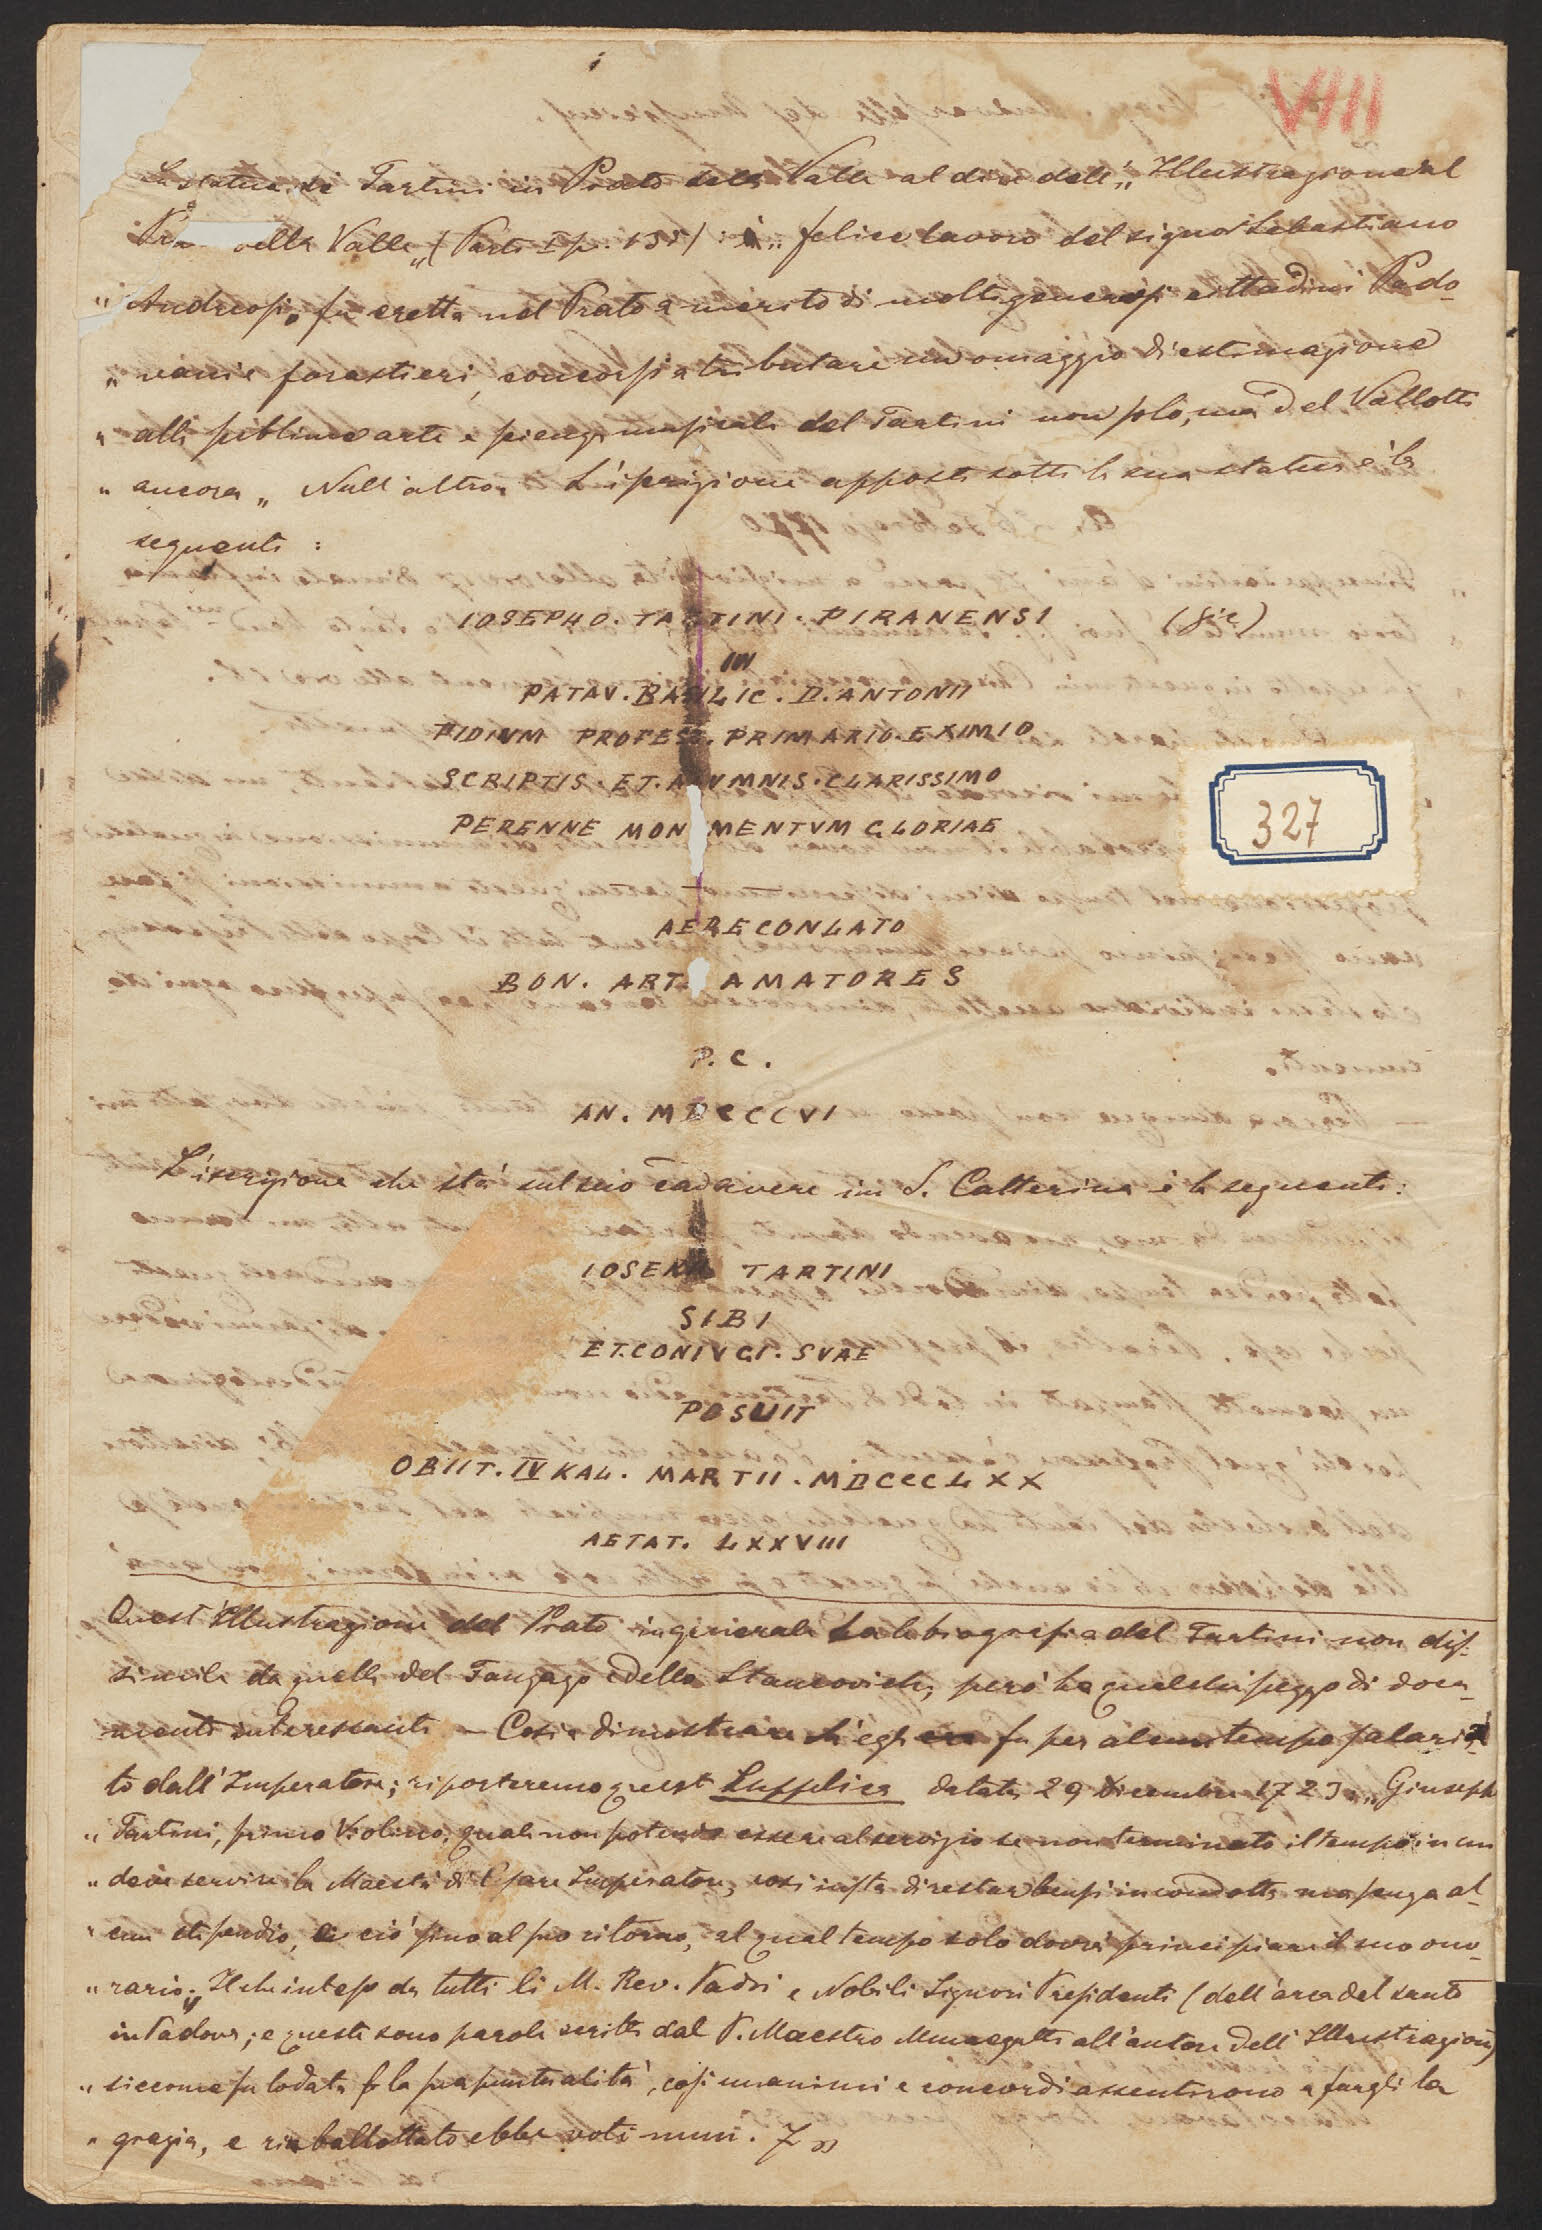 VIII
La statua di Tartini in Prato della Valle al dire dell' „Illustrazione del
Pra della Valle„ (Parte I p. 135) è „felice lavoro del signor Sebastiano
„ Andreosi, fu eretta nel Prato a merito di molti generosi cittadini Pado-
„ vani e forastieri, concorsi a tributare un omaggio di estimazione
„ alla sublime arte e scienza musicale del Tartini non solo, ma del Vallotti
„ ancora „ Null'altro. L'iscrizione apposta sotto la sua statua è la
seguente :
IOSEPHO. TARTINI. PIRANENSI (Sic)
IN
PATAV. BASILIC. D. ANTONII
FIDIVM PROFESS. PRIMARIO. EXIMIO
SCRIPTIS. ET. ALVMNIS. CLARISSIMO
PERENNE MONVMENTVM GLORIAE
327
AERE CONLATO
BON. ART. AMATORES
P. C.
AN. MDCCCVI
L'iscrizione che stà sul suo cadavere in S. Catterina è la seguente:
IOSEPH TARTINI
SIBI
ET. CONIVGI. SVAE
POSUIT
OBIIT. IV KAL. MARTII. MDCCCLXX
AETAT. LXXVIII
Quest'Illustrazione del Prato in generale ha la biografia del Tartini non dis-
simile da quella del Fanzago e dello Stancovich, però ha qualche pezzo di docu-
mento interessante — Così a dimostrare ch'egli fu per alcun tempo salaria-
to dall'Imperatore; riporteremo quest Supplica datata 29 Dicembre 1723. „Giuseppe
„ Tartini, primo Violino, quale non potendo essere al servizio se non terminato il tempo in cui
„ deve servire la Maestà di Cesare Imperatore, così insta di restar bensì in condotta ma senza al-
„ cun stipendio, e ciò sino al suo ritorno, al qual tempo solo dovrà principiare il suo ono-
„ rario. Il che inteso da tutti li M. Rev. Padri e Nobili Signori Presidenti (dell'arca del santo
in Padova; e queste sono parole scritte dal P. Maestro all'autore dell' Illustrazione)
„ siccome fu lodata la sua puntualità, così unanimi e concordi assentirono a fargli la
„ grazia, e riaballottato ebbe voti nuni. 7